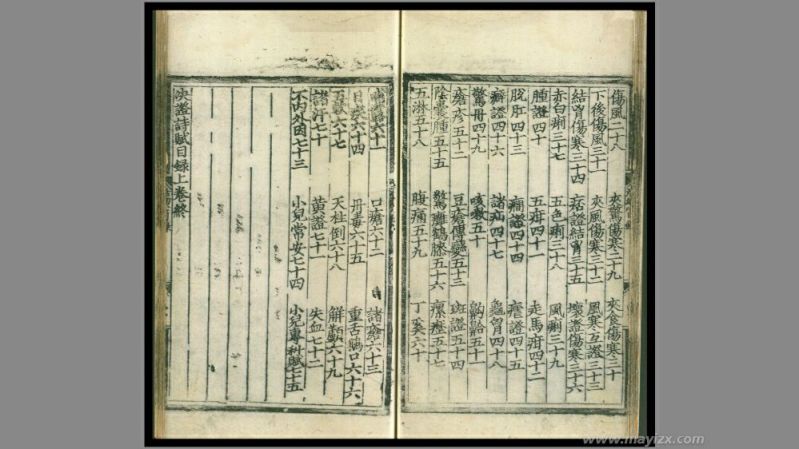 傷風二十八 夾驚傷寒二十九 夾食傷寒三十
下後傷風三十一 夾風傷寒三十二 風寒互證三十三
結胷傷寒三十四 痞證結胷三十五 壞證傷寒三十六
赤白痢三十七 五色痢三十八 風痢三十九
腫證四十 五疳四十一 走馬疳四十二
脫肛四十三 四十四 瘧證四十五
癖證四十六 諸疝四十七 龜胷四十八
驚丹四十九 咳嗽五十 齁䶎五十一
瘡疹五十二 豆瘡傳變五十三 斑證五十四
陰囊腫五十五 驚癱鶴膝五十六 瘰癧五十七
五淋五十八 腹痛五十九 丁奚六十
六十一 口瘡六十二 諸瘡六十三
目六十四 丹毒六十五 重舌鵝口六十六
五六十七 天柱倒六十八 解顱六十九
諸汗七十 黃證七十一 失血七十二
不內外因七十三 小兒常安七十四 小兒專科賦七十五
決證詩賦目録上卷終
www.mayizx.com